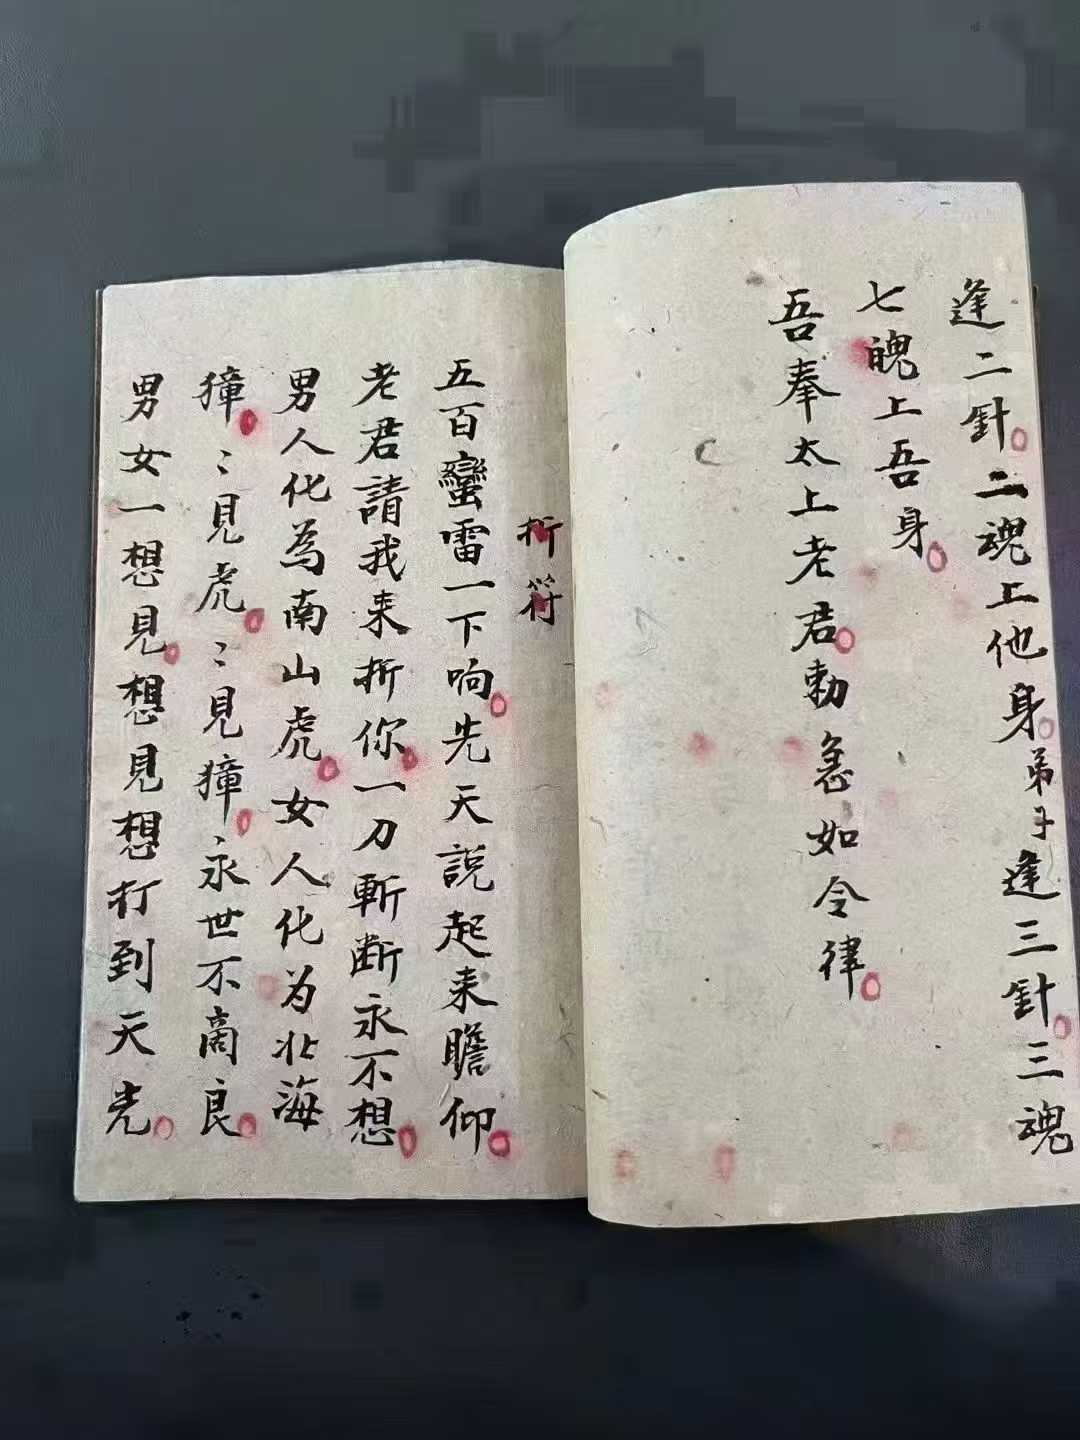 逢二針二魂上他身弟子逢三針三魂
七魄上吾身
吾奉太上老君勅急如令律
折符
五百蠻雷一下响先天説起来瞻仰
老君請我来折你一刀斬断永不想
男人化為南山虎女人化为北海
獐〻見虎〻見獐永世不商良
男女一想見想見想打到天光